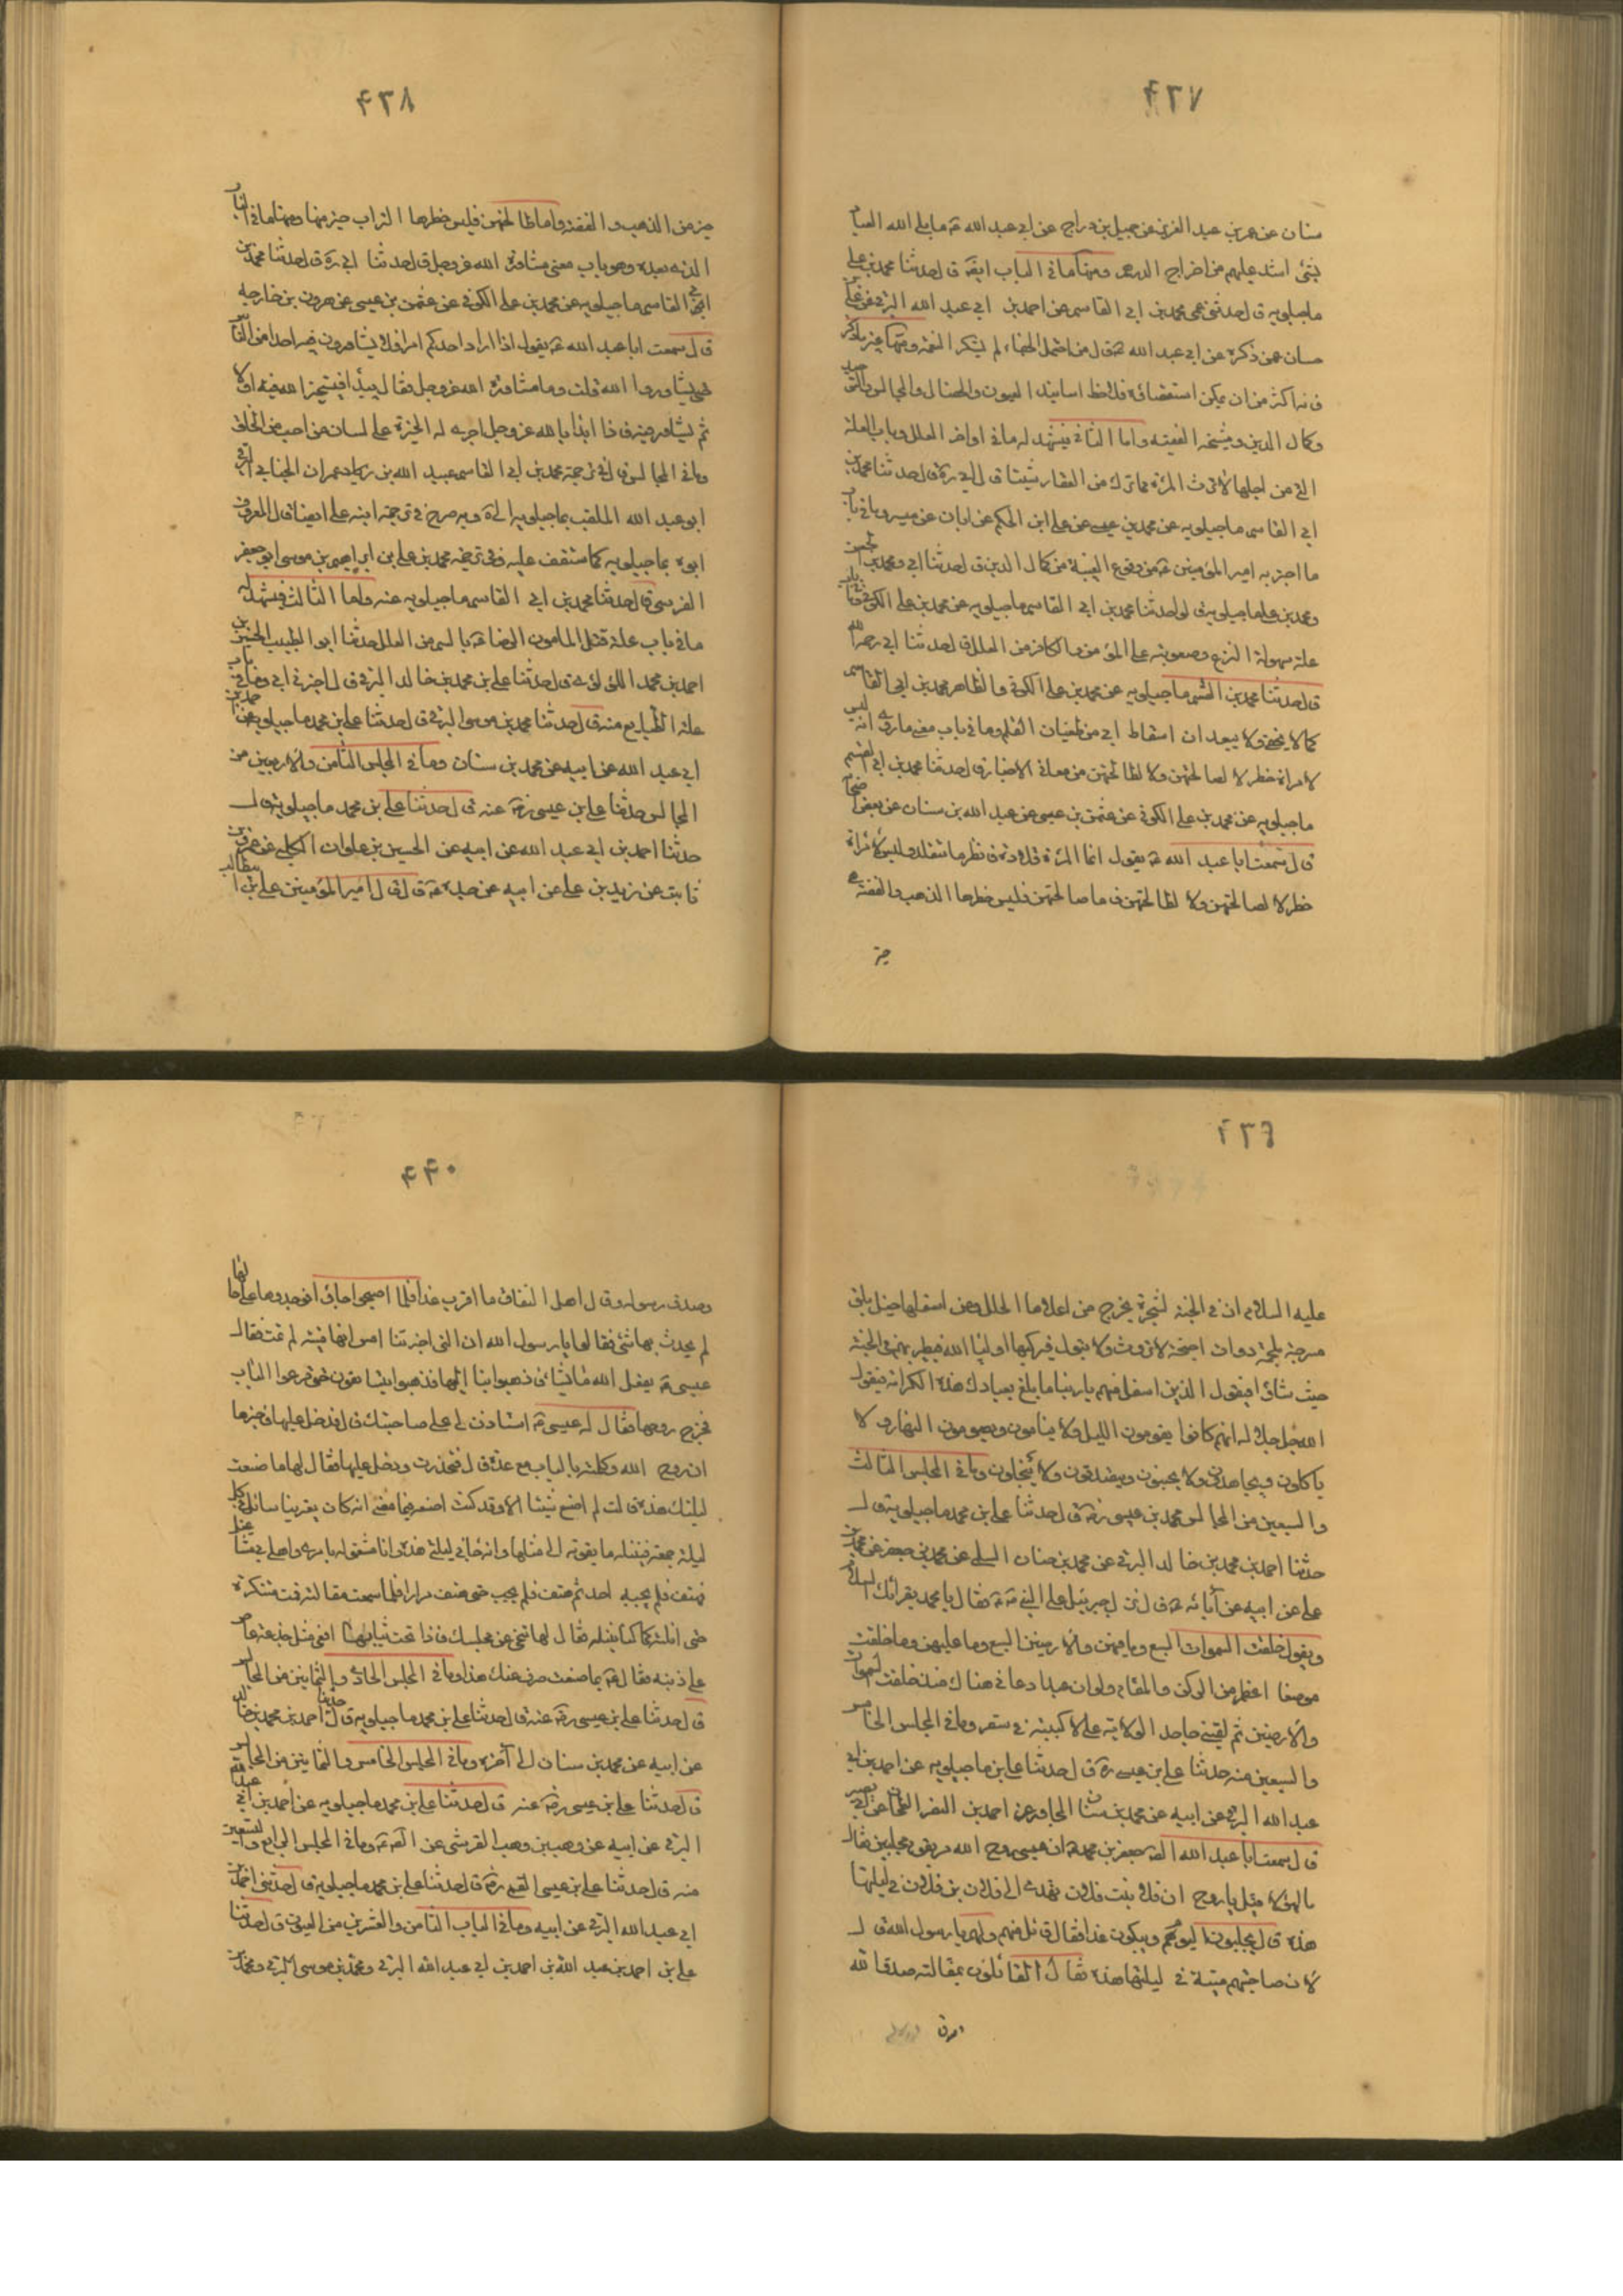 ۴۳۷
سنان عن عمر بن عبد العزيز عن جميل بن دراج عن ابي عبد الله ع ما بلي الله العباد
بشئ اشد عليهم من اخراج الدرهم ومنها ما في الباب ايضا قال حدثنا محمد بن علي
ماجيلويه قال حدثني عمي محمد بن ابي القاسم عن احمد بن ابي عبد الله البرقي عن علي بن
حسان عمن ذكره عن ابي عبد الله ع قال من احتمل الجفاء لم يشكر النعمة ومنها غير ما ذكر
فانه اكثر من ان يمكن استقصائه فلاحظ اسانيد العيون والخصال والمجالس والتوحيد
وكمال الدين ومشيخة الفقيه واما الثاني فيشهد له ما في اواخر العلل وباب العلة
التي من اجلها لا ترث المرئة مما ترك من العقار شيئا قال ابي ره قال حدثنا محمد بن
ابي القاسم ماجيلويه عن محمد بن عيسى عن علي ابن الحكم عن ابان عن ميسر وما في باب
ما اخبر به امير المؤمنين ع من وقوع الغيبة من كمال الدين قال حدثنا ابي ومحمد بن الحسن
ومحمد بن علي ماجيلويه قالوا حدثنا محمد بن ابي القاسم ماجيلويه عن محمد بن علي الكوفي وفي باب
علة سهولة النزع وصعوبته على المؤمن والكافر من العلل قال حدثنا ابي رحمه الله
قال حدثنا محمد بن القسم ماجيلويه عن محمد بن علي الكوفي والظاهر محمد بن ابي القاسم
كما لا يخفى ولا يبعد ان اسقاط ابي من طغيان القلم وما في باب معنى ما روي انه ليس
لامراة خطر لا لصالحتهن ولا لطالحتهن من معاني الاخبار قال حدثنا محمد بن ابي القسم
ماجيلويه عن محمد بن علي الكوفي عن عثمن بن عيسى عن عبد الله بن سنان عن بعض اصحابنا
قال سمعت ابا عبد الله ع يقول انما المرئة قلادة فانظر ما تتقلد وليس لامراة
خطر لا لصالحتهن ولا لطالحتهن فاما صالحتهن فليس خطرها الذهب والفضة هي
خير
۴۳۸
خير من الذهب والفضة واما طالحتهن فليس خطرها التراب خير منها ومنها ما في الباب
الذي بعده وهو باب معنى مشاورة الله عز وجل قال حدثنا ابي ره قال حدثنا محمد بن
ابي القاسم ماجيلويه عن محمد بن علي الكوفي عن عثمن بن عيسى عن هرون بن خارجه
قال سمعت ابا عبد الله ع يقول اذا اراد احدكم امرا فلا يشاورن فيه احدا من الناس
حتى يشاوروا الله قلت وما مشاورة الله عز وجل فقال يبدأ فيستخير الله فيه اولا
ثم يشاور فيه فاذا ابدأ بالله عز وجل اجرى له الخيرة على لسان من احب من الخلق
وما في المجالس قال في ترجمة محمد بن ابي القاسم عبيد الله بن عمران الجنابي البرقي
ابو عبد الله الملقب بماجيلويه الخ وبه صرح في ترجمة ابنه علي ايضا قال المعروف
ابوه بماجيلويه كما ستقف عليه وفي ترجمة محمد بن علي بن ابراهيم بن موسى ابو جعفر
القرسي قال حدثنا محمد بن ابي القاسم ماجيلويه عنه واما الثالث فيشهد له
ما في باب علة قتل المامون الرضا ع بالسم من العلل حدثنا ابو الطيب الحسين بن
احمد بن محمد اللؤلؤي قال حدثنا علي بن محمد بن خالد البرقي قال اخبرني ابي وما في باب
علة الطبايع منه قال حدثنا محمد بن موسى البرقي قال حدثنا علي بن محمد ماجيلويه عن احمد بن
ابي عبد الله عن ابيه عن محمد بن سنان وما في المجلس الثامن والاربعين من
المجالس حدثنا علي بن عيسى ره عنه قال حدثنا علي بن محمد ماجيلويه قال
حدثنا احمد بن ابي عبد الله عن ابيه عن الحسين بن علوان الكلبي عن عمرو بن
ثابت عن زيد بن علي عن ابيه عن جده ع قال قال امير المؤمنين علي بن ابيطالب
۴۳۹
عليه السلام ان في الجنة لشجرة يخرج من اعلاها الحلل ومن اسفلها خيل بلق
مسرجة ملجمة ذوات اجنحة لا تروث ولا تبول فيركبها اولياء الله فيطير بهم في الجنة
حيث شاؤا فيقول الذين اسفل منهم يا ربنا ما بلغ بعبادك هذه الكرامة فيقول
الله جل جلاله انهم كانوا يقومون الليل ولا ينامون ويصومون النهار ولا
ياكلون ويجاهدون ولا يجبنون ويتصدقون ولا يبخلون وما في المجلس الثالث
والسبعين من المجالس محمد بن عيسى ره قال حدثنا علي بن محمد ماجيلويه قال
حدثنا احمد بن محمد بن خالد البرقي عن محمد بن حنان السلمي عن محمد بن جعفر عن محمد بن
علي عن ابيه عن آبائه ع قال نزل جبرئيل على النبي ص فقال يا محمد يقرائك السلام
ويقول خلقت السموات السبع وما فيهن والارضين السبع وما عليهن وما خلقت
موضعا اعظم من الركن والمقام ولو ان عبدا دعاني هناك منذ خلقت السموات
والارضين ثم لقيني جاحدا لولاية علي لاكببته في سقر وما في المجلس الخامس
والسبعين منه حدثنا علي بن عيسى ره قال حدثنا علي بن ماجيلويه عن احمد بن ابي
عبد الله البرقي عن ابيه عن محمد بن سنان المجاور عن احمد بن النضر الطحان عن ابي بصير
قال سمعت ابا عبد الله الص جعفر بن محمد ع ان عيسى روح الله مر بقوم مجلبين فقال
ما لهؤلاء قيل يا روح ان فلانة بنت فلان تهدى الى فلان بن فلان في ليلتها
هذه قال يجلبون اليوم ويبكون غدا فقال قائل منهم ولم يا رسول الله قال
لان صاحبتهم ميتة في ليلتها هذه فقال القائلون بمقالته صدق الله
وصدق
۴۴۰
وصدق رسوله وقال اهل النفاق ما اقرب غدا فلما اصبحوا جاؤا فوجدوها على حالها
لم يحدث بها شئ فقالوا يا رسول الله ان التي اخبرتنا امس انها ميتة لم تمت فقال
عيسى ع يفعل الله ما يشاء فاذهبوا بنا اليها فذهبوا يتسابقون حتى قرعوا الباب
فخرج زوجها فقال له عيسى ع استاذن لي على صاحبتك قال فدخل عليها فاخبرها
ان روح الله وكلمته بالباب مع عدة قال فتخدرت ودخل عليها فقال لها ما صنعت
ليلتك هذه قالت لم اصنع شيئا الا وقد كنت اصنعه فيما مضى انه كان يعترينا سائل في كل
ليلة جمعة فننيله ما يقوته الى مثلها وانه جاءني ليلتي هذه وانا مشغوله بامري واهلي في مشاغل
فهتف فلم يجبه احد ثم هتف فلم يجب حتى هتف مرارا فلما سمعت مقالته قمت متنكرة
حتى انلته كما كنا ننيله فقال لها تنحي عن مجلسك فاذا تحت ثيابها افعى مثل جذعة عاض
على ذنبه فقال ع بما صنعت صرف عنك هذا وما في المجلس الحادي والثمانين من المجالس
قال حدثنا علي بن عيسى ره عنه قال حدثنا علي بن محمد ماجيلويه قال حدثنا احمد بن محمد بن خالد
عن ابيه عن محمد بن سنان الى آخره وما في المجلس الخامس والثمانين من المجالس
قال حدثنا علي بن عيسى ره عنه قال حدثنا علي بن محمد ماجيلويه عن احمد بن ابي عبد الله
البرقي عن ابيه عن وهب بن وهب القرشي عن الص ع وما في المجلس الرابع والتسعين
منه قال حدثنا علي بن عيسى القمي ره قال حدثنا علي بن محمد ماجيلويه قال حدثني احمد بن
ابي عبد الله البرقي عن ابيه وما في الباب الثامن والعشرين من العيون قال حدثنا
علي بن احمد بن عبد الله بن احمد بن ابي عبد الله البرقي ومحمد بن موسى البرقي ومحمد بن